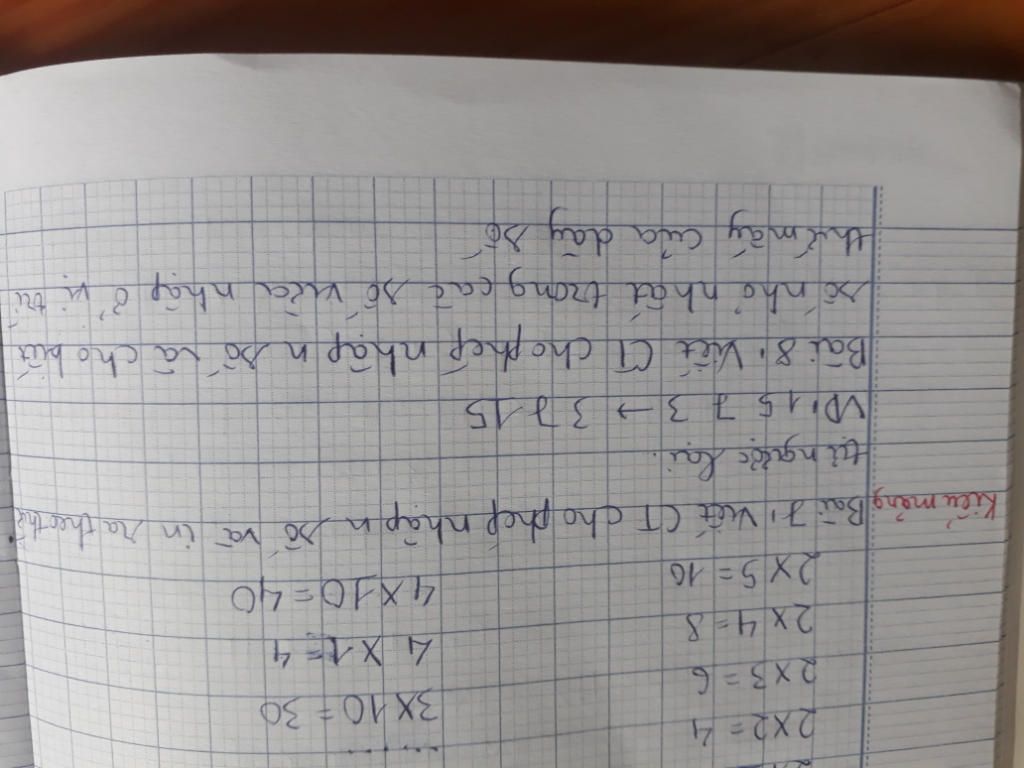 2x2=4
..... 3x10=30
2x3=6
4x1=4
2x4=8
4x10=40
2x5=10
Kiểu mảng
Bài 7: Viết CT cho phép nhập n số và in ra theo thứ
tự ngược lại.
VD: 15 7 3 → 3 7 15
Bài 8: Viết CT cho phép nhập n số và cho biết
số nhỏ nhất trong các số vừa nhập ở vị trí
thứ mấy của dãy số